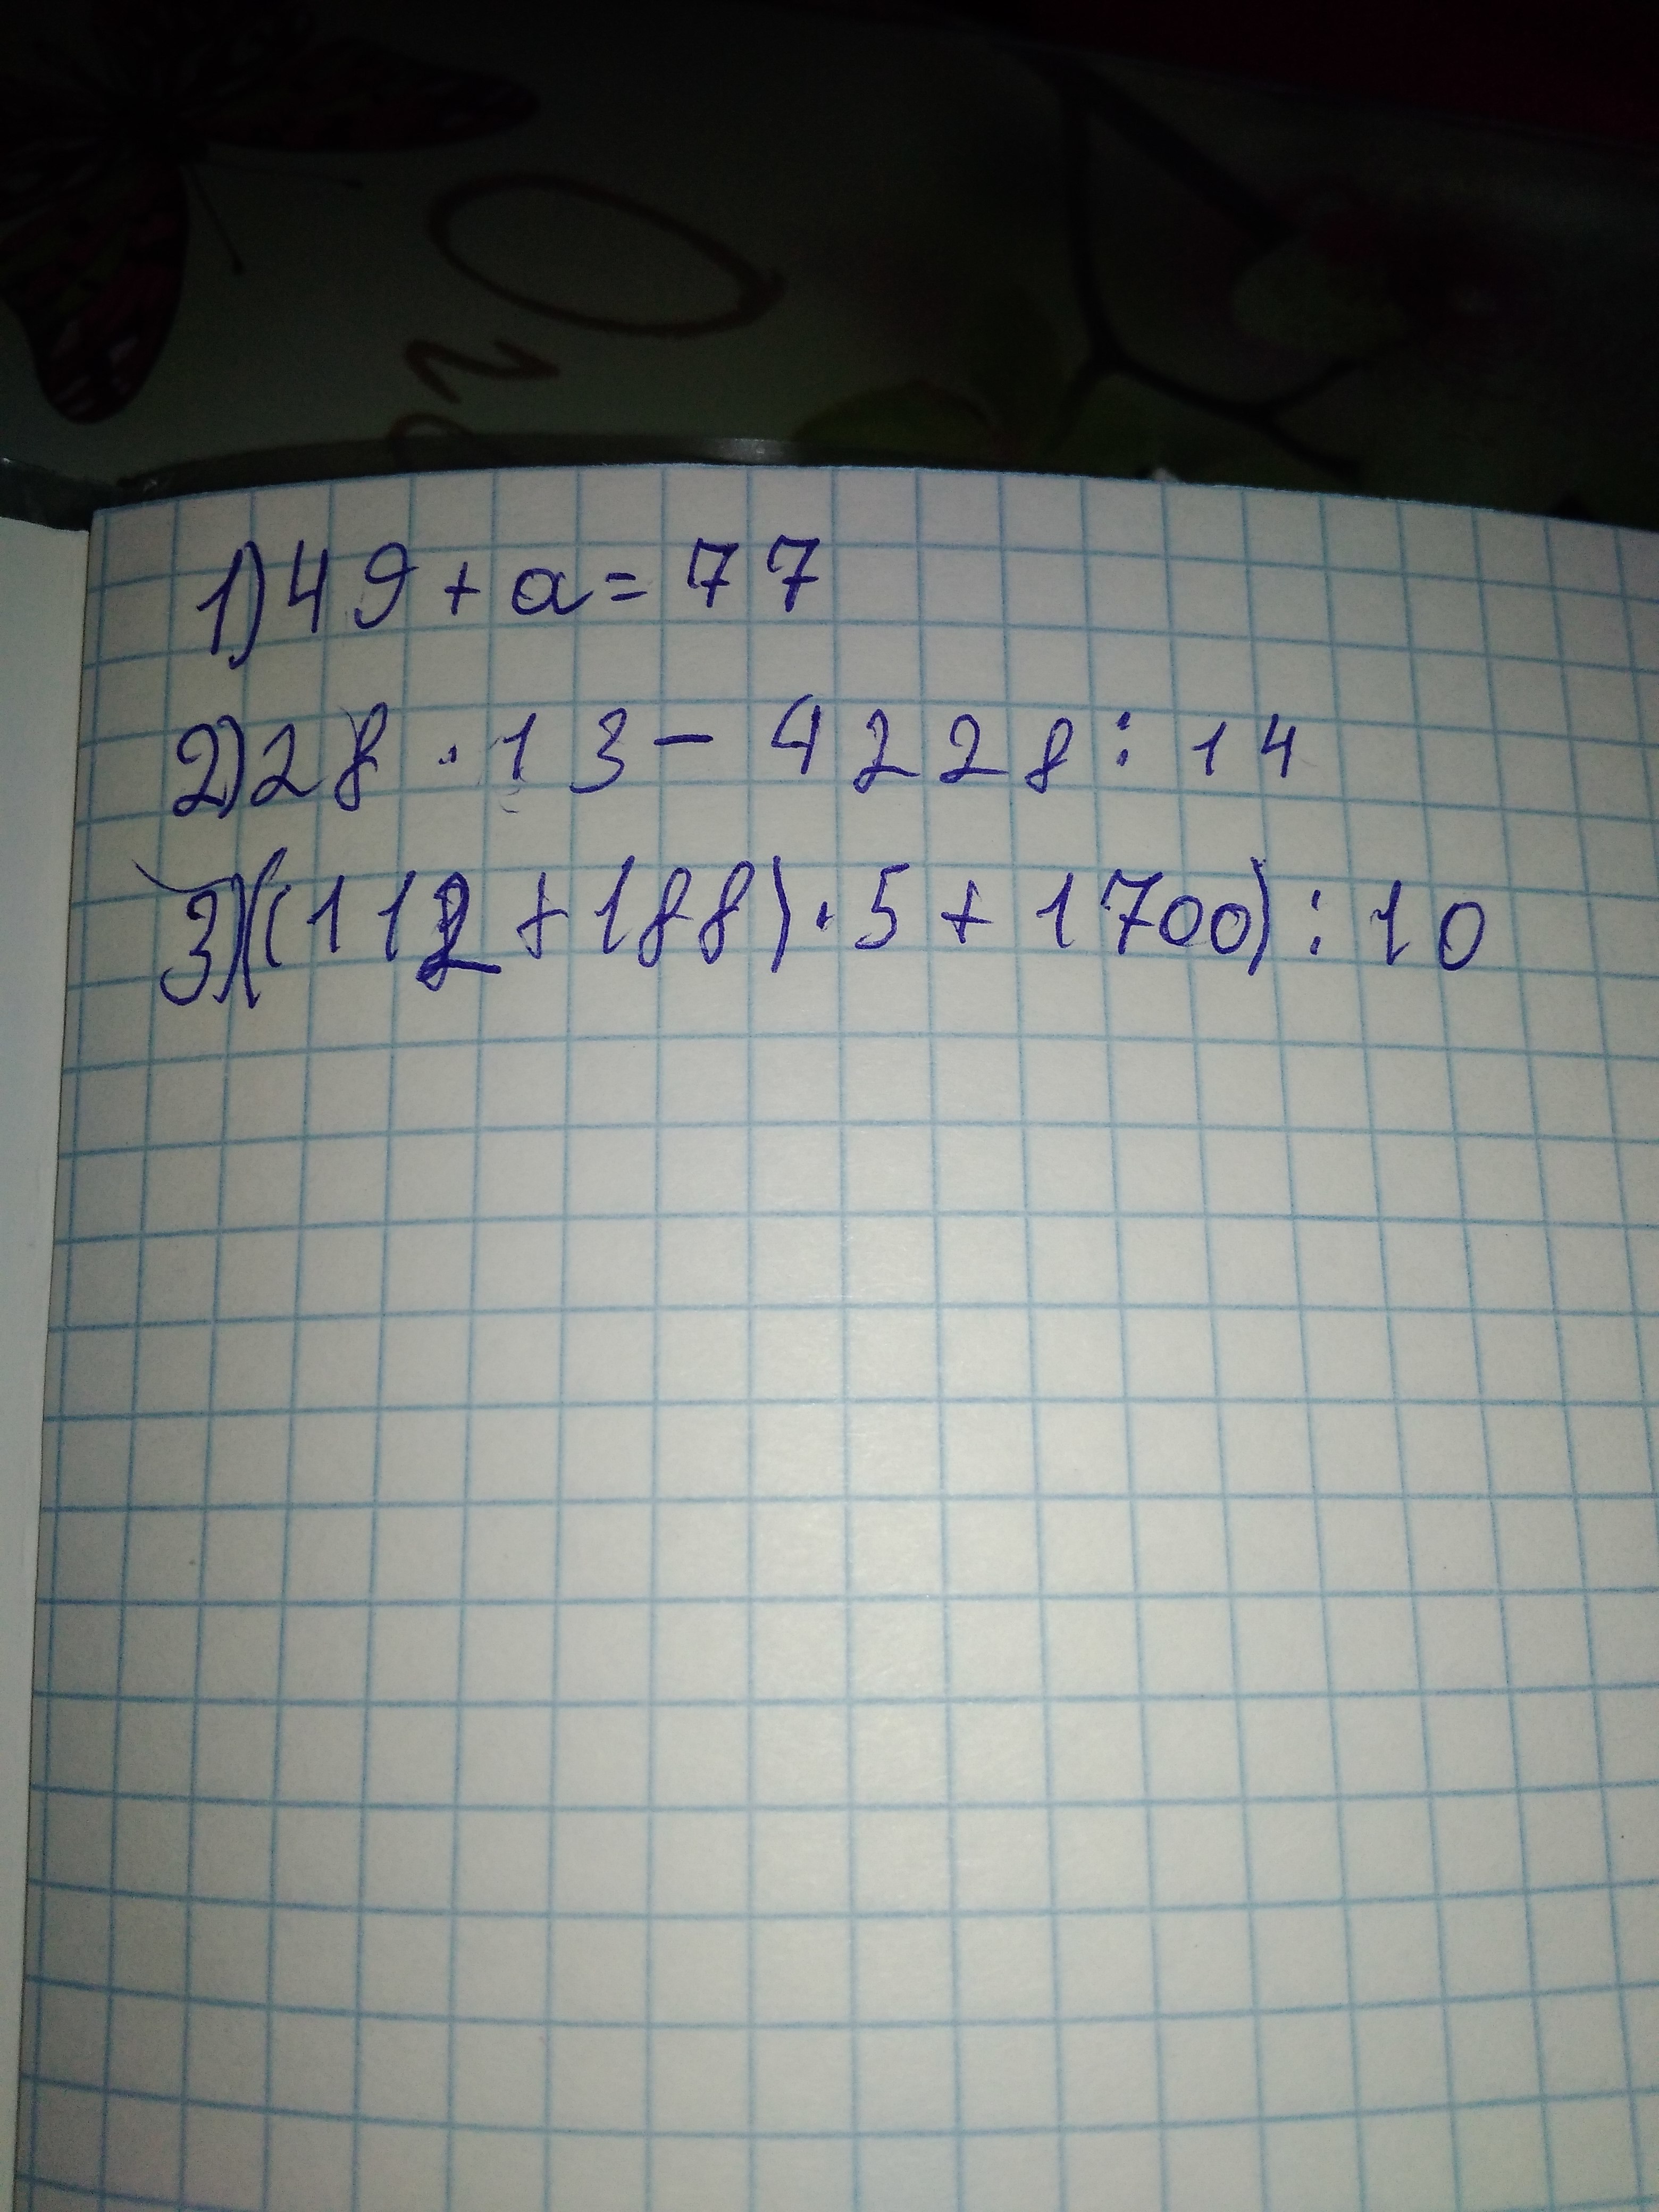 1) 49 + a = 77
2) 28 · 13 - 4228 : 14
3) ((112 + 188) · 5 + 1700) : 10